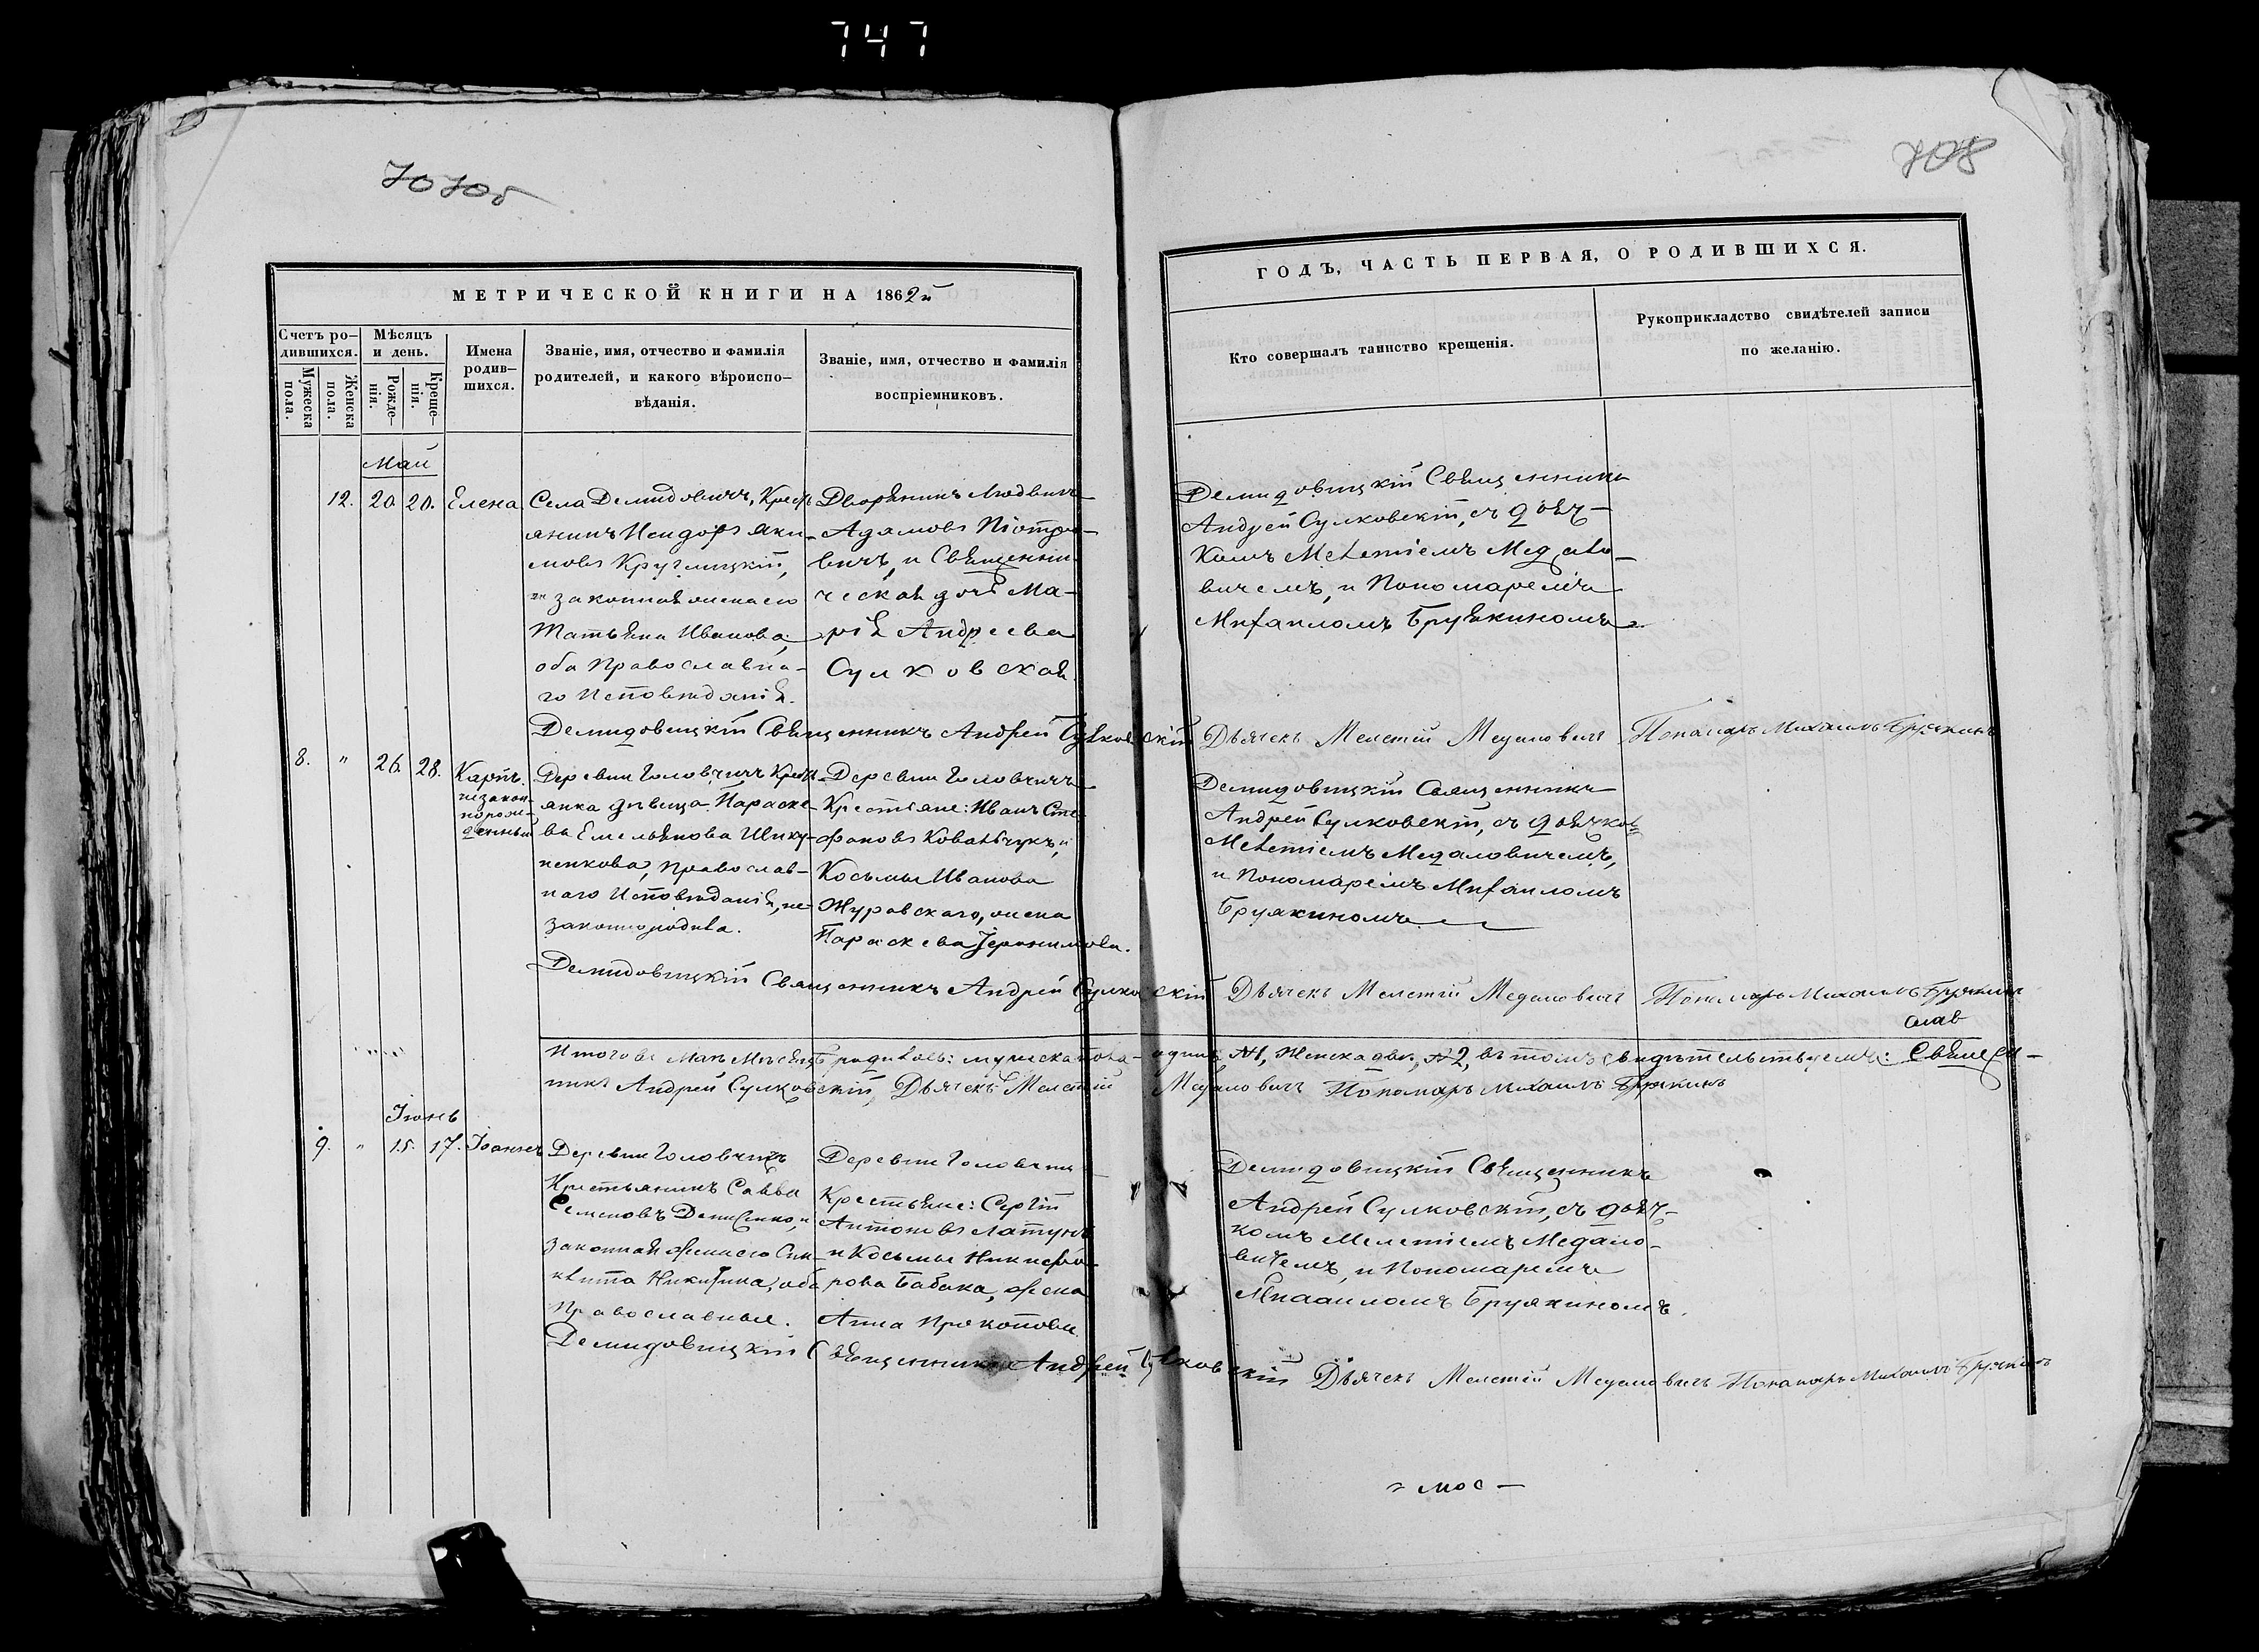 747
707об
708
МЕТРИЧЕСКОЙ КНИГИ НА 1862й
Счетъ ро-
дившихся.
Мужеска
пола.
Женска
пола.
Мѣсяцъ
и день.
Рожде-
нія.
Креще-
нія.
Имена
родив-
шихся.
Званіе, имя, отчество и фамилія
родителей, и какого вѣроиспо-
вѣданія.
Званіе, имя, отчество и фамилія
воспріемниковъ.
ГОДЪ, ЧАСТЬ ПЕРВАЯ, О РОДИВШИХСЯ.
Кто совершалъ таинство крещенія.
Рукоприкладство свидѣтелей записи
по желанію.
Май
12. 20. 20. Елена
Села Демидовичъ, Крест
янинъ Исидоръ Яки-
мовъ Круглицкій,
и законная жена его
Татьяна Иванова,
оба Православна-
го Исповѣданія.
Дворянинъ Людвигъ
Адамовъ Піотро-
вичъ, и Священни-
ческая дочь Ма-
рія Андреева
Сулковская.
Демидовицкій Священникъ
Андрей Сулковскій, съ дьяч-
комъ Мелетіемъ Медало-
вичемъ, и Пономаремъ
Михаиломъ Бруякиномъ
Демидовицкій Священникъ Андрей Сулковскій Дьячекъ Мелетій Медаловичъ Понамарь Михаилъ Бруякинъ
8. " 26. 28. Карпъ
незакон-
норож-
денный
Деревни Головчицъ Крестъ
янка дѣвица Параске
ва Емельянова
православ-
наго Исповѣданія, не
законнородила.
Деревни Головчицъ
Крестьяне: Иванъ Сте
фановъ Ковальчукъ, и
Косьмы Иванова
Журавскаго, жена
Параскева Іеронимова.
Демидовицкій Священникъ
Андрей Сулковскій, съ дьячком
Мелетіемъ Медаловичемъ,
и Пономаремъ Михаиломъ
Бруякиномъ
Демидовицкій Священникъ Андрей Сулковскій Дьячекъ Мелетій Медаловичъ Пономарь Михаилъ Бруякинъ
Итого въ Маѣ Мѣсяцѣ родилось: мужеска пола одинъ №1, Женска два, №2, въ томъ свидѣтельствуемъ: Священ-
никъ Андрей Сулковскій, Дьячекъ Мелетій Медаловичъ Пономарь Михаилъ Бруякинъ
Іюнь
9. " 15. 17. Іоаннъ
Деревни Головчицъ
Крестьянинъ Савва
Семеновъ Денисенко, и
законная жена его Син-
клита Никитина, оба
Православные.
Деревни Головчицъ
Крестьяне: Сергій
Антоновъ Латунъ
и Косьмы Никифо-
рова Бабака, жена
Анна Прокопова.
Демидовицкій Священникъ
Андрей Сулковскій, съ дьяч-
комъ Мелетіемъ Медало-
вичемъ, и Пономаремъ
Михаиломъ Бруякиномъ.
Демидовицкій Священникъ Андрей Сулковскій Дьячекъ Мелетій Медаловичъ Понамарь Михаилъ Бруякинъ